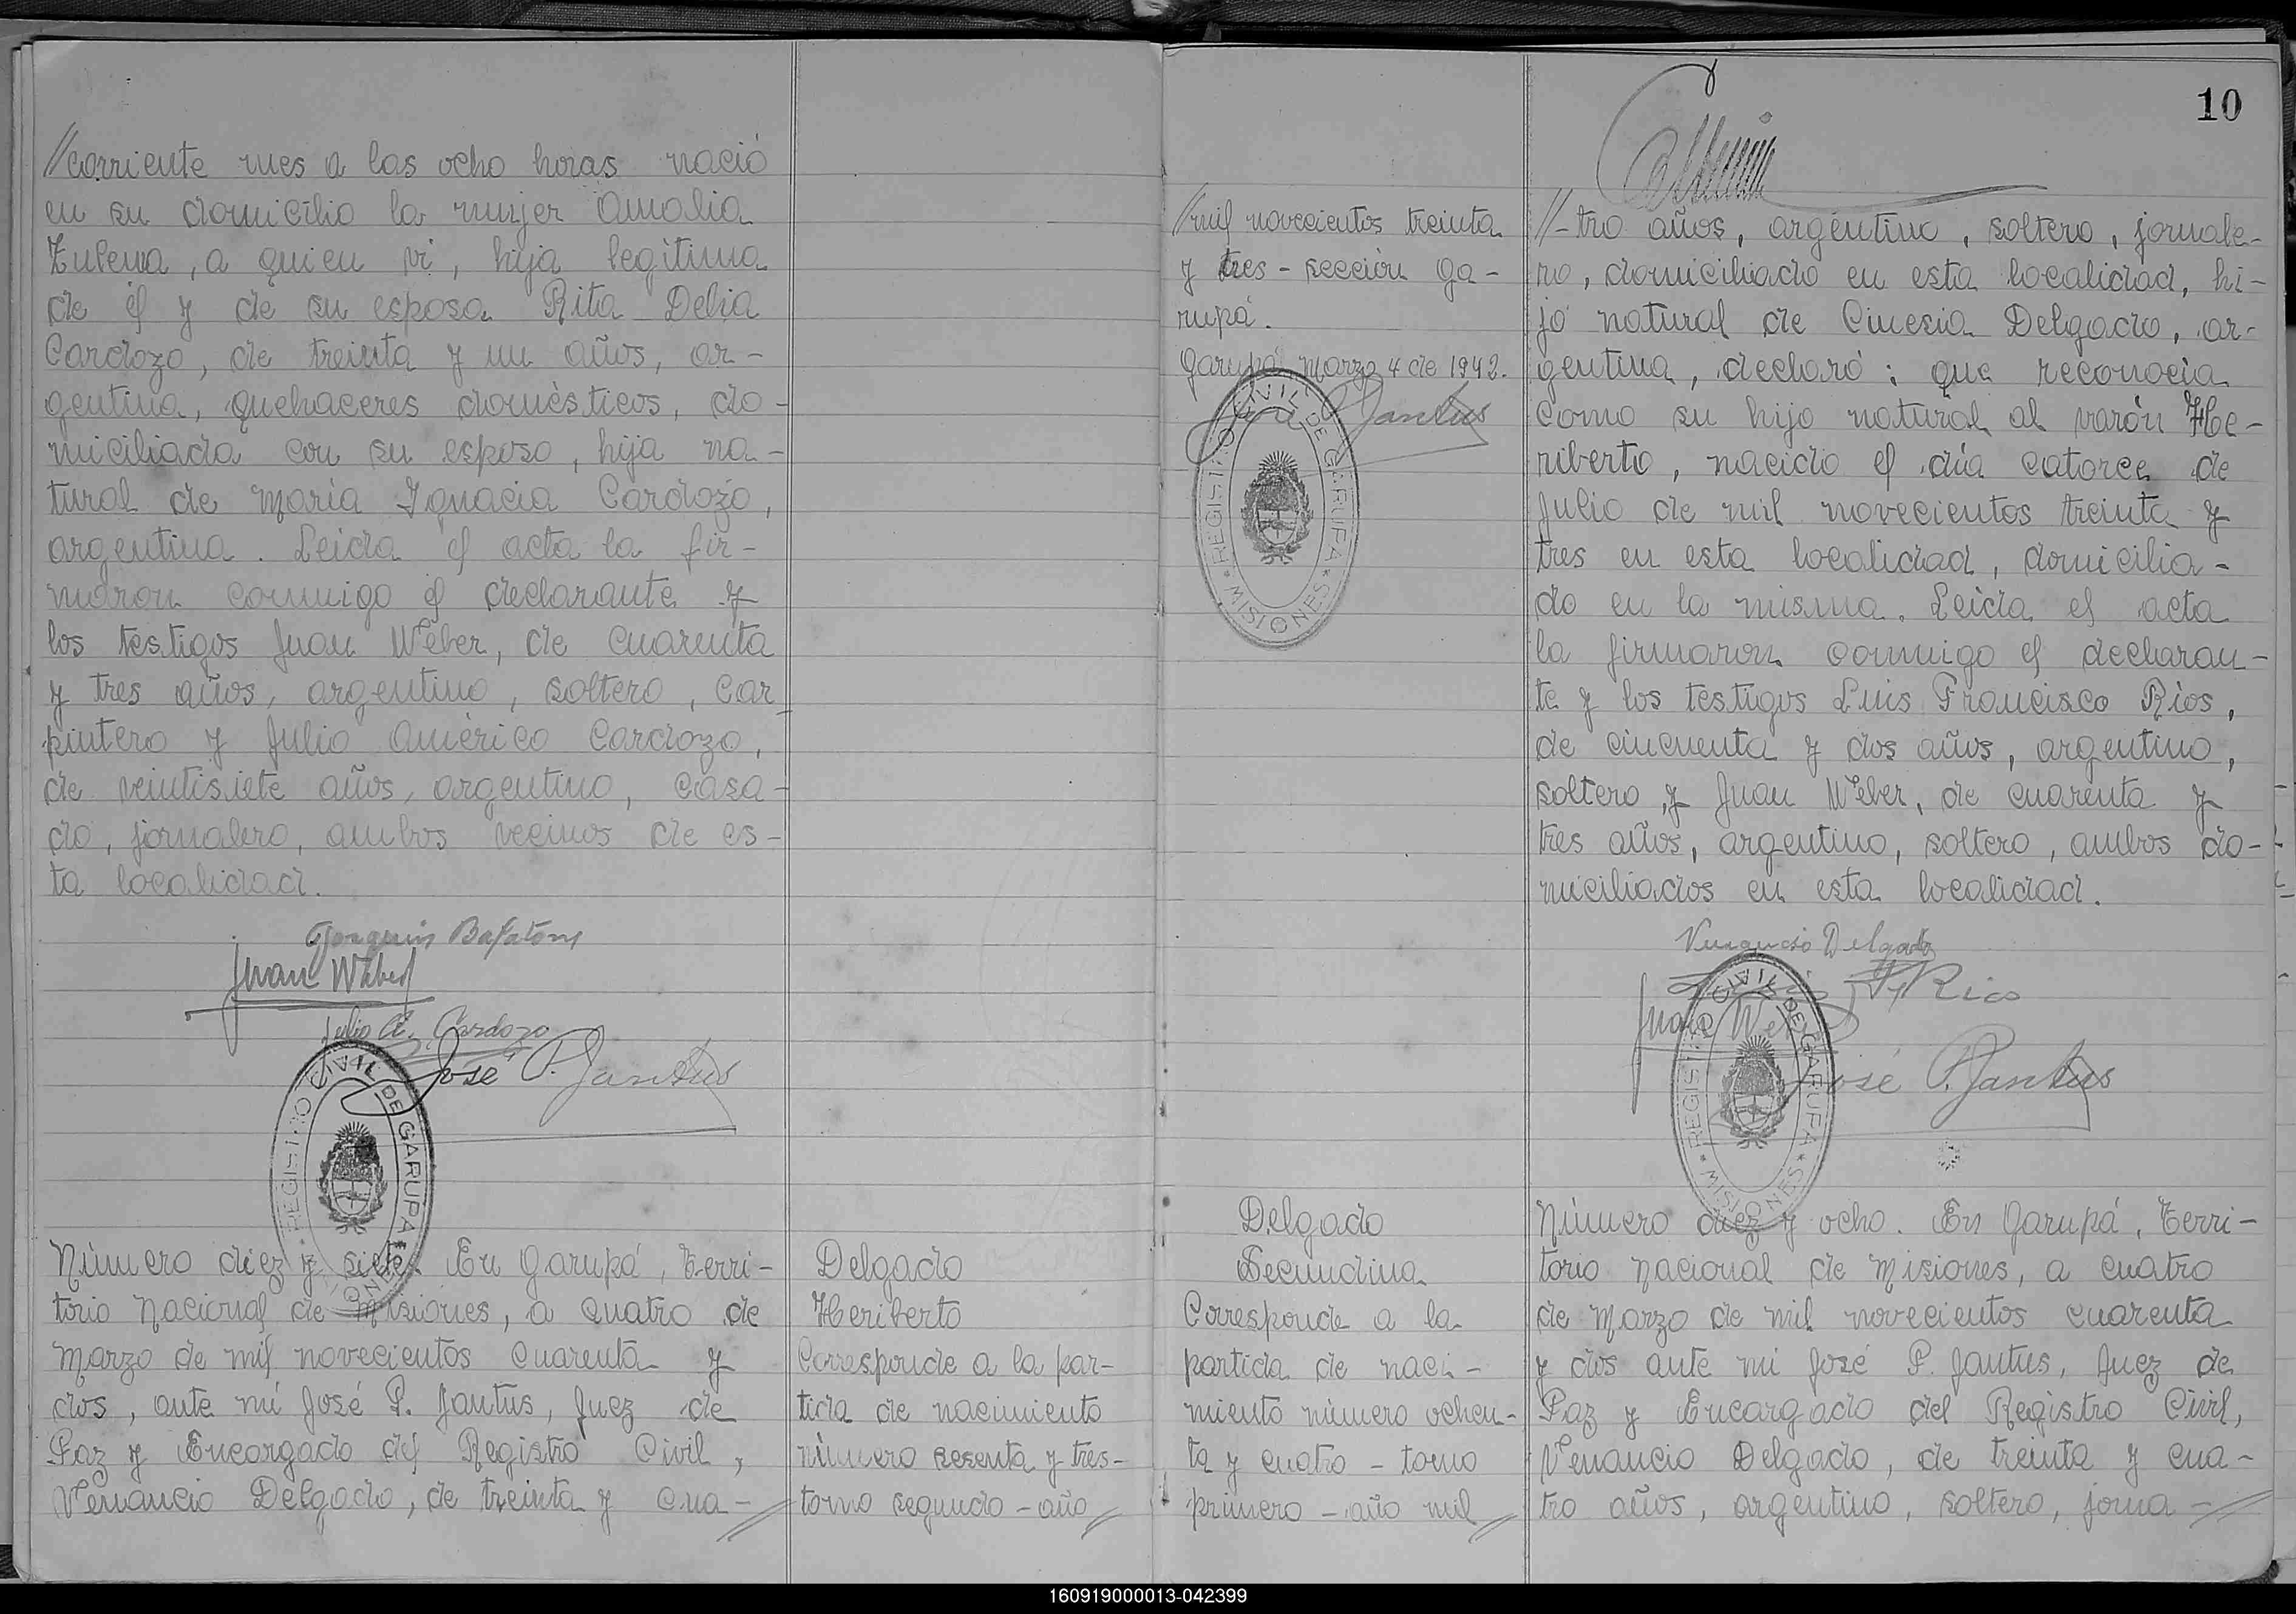 //corriente mes a las ocho horas nació
en su domicilio la mujer Amalia
Zulema, a quien vi, hija legítima
de él y de su esposa Rita Delia
Cardozo, de treinta y un años, ar-
gentina, quehaceres domésticos, do-
miciliada con su esposo, hija na-
tural de María Ignacia Cardozo,
argentina. Leida el acta la fir-
maron conmigo el declarante y
los testigos Juan Weber, de cuarenta
y tres años, argentino, soltero, car-
pintero y Julio Américo Cardozo,
de veintisiete años, argentino, casa-
do, jornalero, ambos vecinos de es-
ta localidad.
Juan Weber
Julio A. Cardozo
José P. Jantus
REGISTRO CIVIL DE GARUPA * MISIONES *
Número diez y siete. En Garupá, Terri-
torio Nacional de Misiones, a cuatro de
Marzo de mil novecientos cuarenta y
dos, ante mí José P. Jantus, Juez de
Paz y Encargado del Registro Civil,
Venancio Delgado, de treinta y cua-//
Delgado
Heriberto
Corresponde a la par-
tida de nacimiento
número sesenta y tres-
tomo segundo - año//
//mil novecientos treinta
y tres - sección Ga-
rupá.
Garupá, Marzo 4 de 1942.
José P. Jantus
REGISTRO CIVIL DE GARUPA * MISIONES *
10
//-tro años, argentino, soltero, jornale-
ro, domiciliado en esta localidad, hi-
jo natural de Cinesia Delgado, ar-
gentina, declaró: que reconocía
como su hijo natural al varón He-
riberto, nacido el día catorce de
Julio de mil novecientos treinta y
tres en esta localidad, domicilia-
do en la misma. Leida el acta
la firmaron conmigo el declaran-
te y los testigos Luis Francisco Ríos,
de cincuenta y dos años, argentino,
soltero, y Juan Weber, de cuarenta y
tres años, argentino, soltero, ambos do-
miciliados en esta localidad.
Venancio Delgado
Luis F. Rios
Juan Weber
José P. Jantus
REGISTRO CIVIL DE GARUPA * MISIONES *
Delgado
Secundina
Corresponde a la
partida de naci-
miento número ochen-
ta y cuatro - tomo
primero - año mil//
Número diez y ocho. En Garupá, Terri-
torio Nacional de Misiones, a cuatro
de Marzo de mil novecientos cuarenta
y dos ante mi José P. Jantus, Juez de
Paz y Encargado del Registro Civil,
Venancio Delgado, de treinta y cua-
tro años, argentino, soltero, jorna-//
160919000013-042399